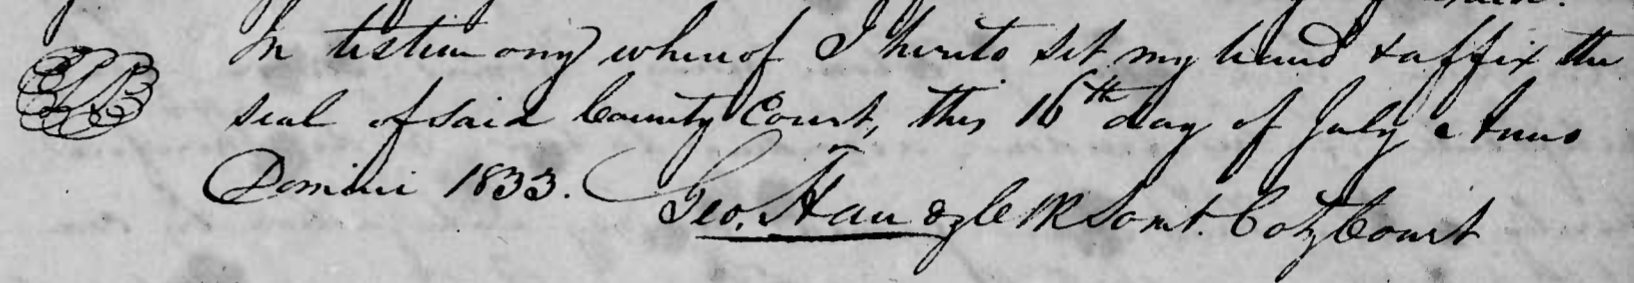 In testimony whereof I hereto set my hand & affix the
seal of said County Court, this 16th day of July Anno
Domini 1833.
Geo. Handy Clk Somt. Coty Court